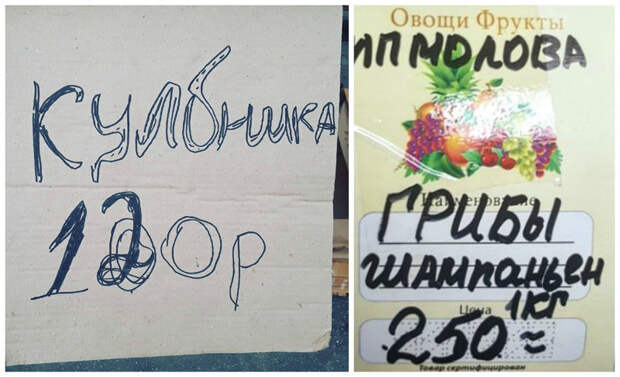 Кулбника
120р
Овощи Фрукты
ИП МОЛОВА
Наименование
ГРИБЫ
ШАМПАНЬЕН
Цена
1КГ
250=
Товар сертифицирован